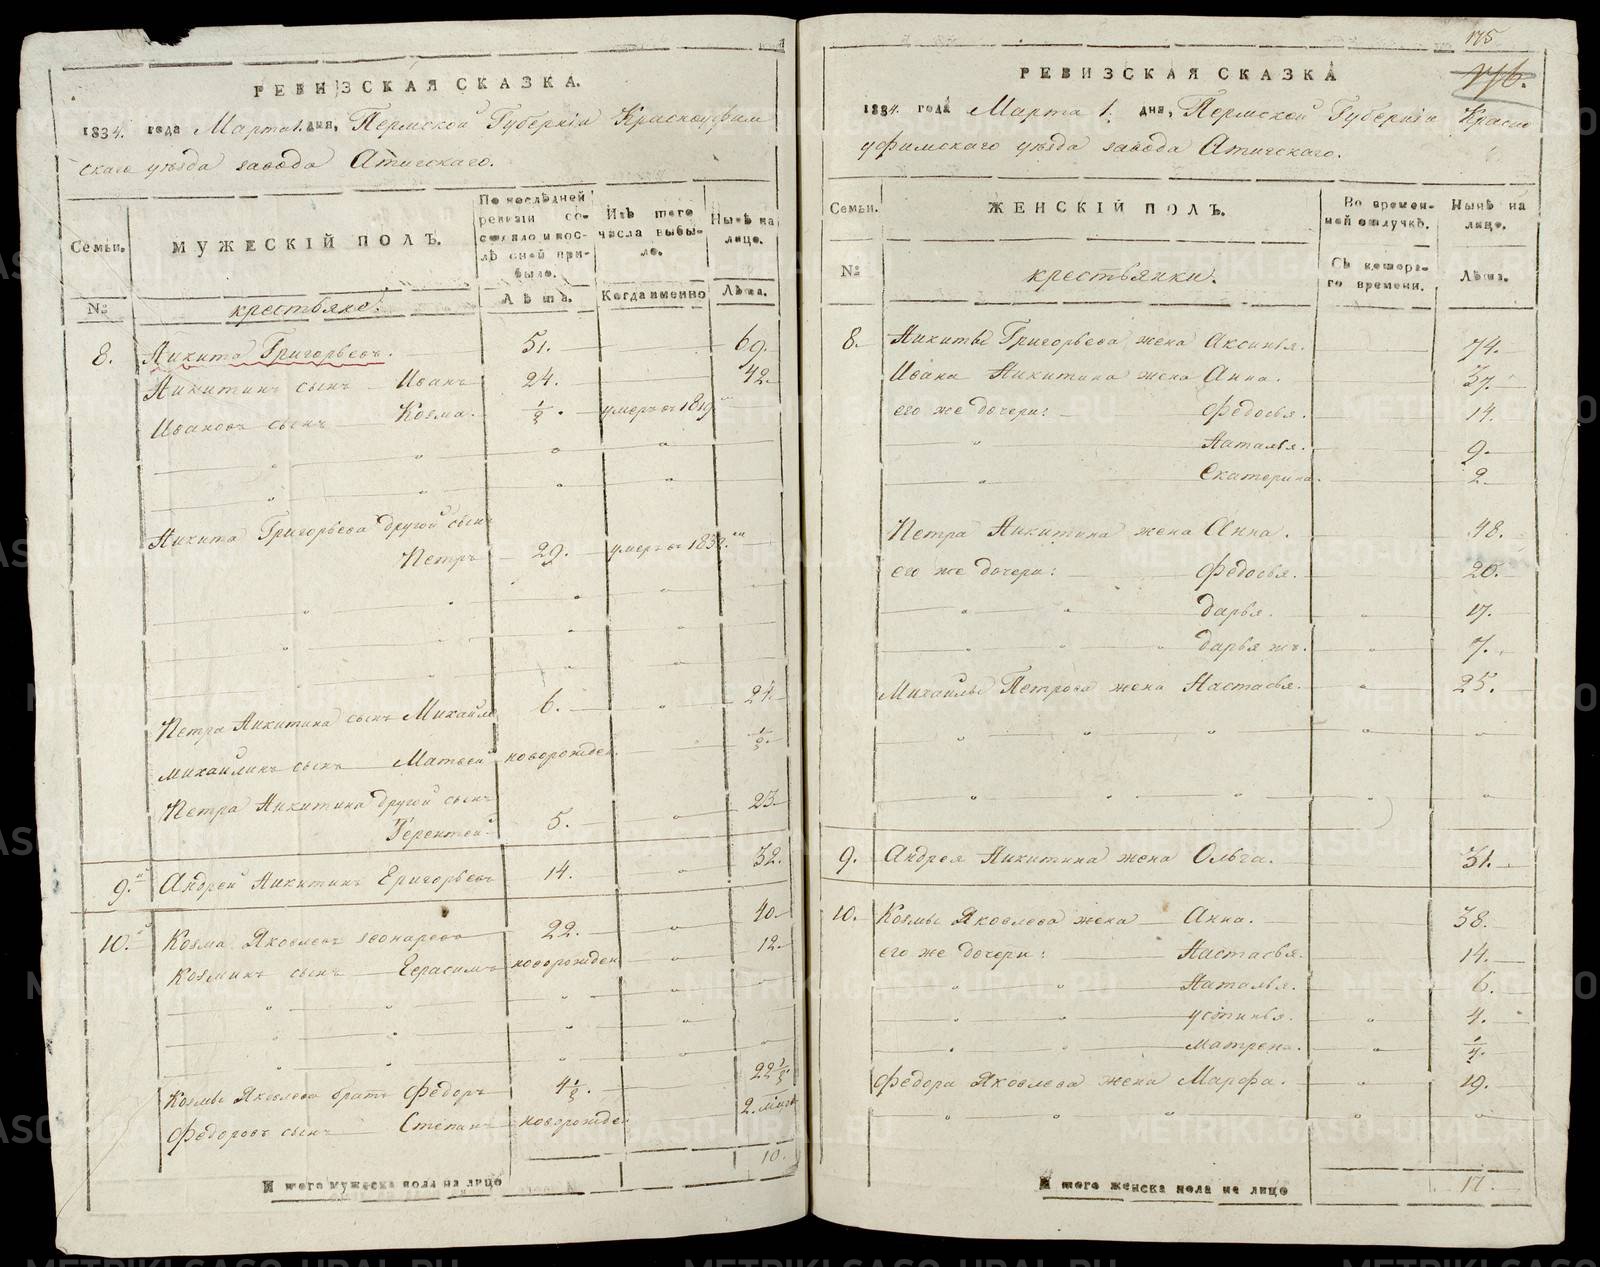 РЕВИЗСКАЯ СКАЗКА.
1834. года Марта 1. дня, Пермской Губерніи Красноуфим
скаго уѣзда завода Атигскаго.
Семьи.
МУЖЕСКІЙ ПОЛЪ.
По послѣдней ревизіи состояло и послѣ оной прибыло.
Изъ того числа выбыло.
Нынѣ на лице.
№
крестьяне.
Лѣта.
Когда именно
Лѣта.
8. Никита Григорьевъ. 51. 69.
Никитинъ сынъ Иванъ 24. 42.
Ивановъ сынъ Козма. 1/2. умеръ въ 1819
Никита Григорьева другой сынъ
Петръ 29. умеръ въ 1832.
Петра Никитина сынъ Михайло 6. 24.
Михайлинъ сынъ Матвей новорожден. 1/2.
Петра Никитина другой сынъ
Терентей 5. 23.
9. Андрей Никитинъ Григорьевъ 14. 32.
10. Козма Яковлевъ 22. 40.
Козминъ сынъ Герасимъ новорожден 12.
Козмы Яковлева братъ Федоръ 4 1/2. 22 1/2.
Федоровъ сынъ Степанъ новорожден 2.
И того мужеска пола на лицо 10.
175
176.
РЕВИЗСКАЯ СКАЗКА
1834. года Марта 1. дня, Пермской Губерніи Красно
уфимскаго уѣзда завода Атигскаго.
Семьи.
ЖЕНСКІЙ ПОЛЪ.
Во временной отлучкѣ.
Нынѣ на лице.
№
крестьянки.
Съ котораго времени.
Лѣта.
8. Никиты Григорьева жена Аксинья. 74.
Ивана Никитина жена Анна. 37.
его же дочери: Федосья. 14.
Наталья. 9.
Екатерина. 2.
Петра Никитина жена Анна. 48.
его же дочери: Федосья. 20.
дарья. 17.
дарья жъ. 7.
Михайлы Петрова жена Настасья. 25.
9. Андрея Никитина жена Ольга. 31.
10. Козмы Яковлева жена Анна. 38.
его же дочери: Настасья. 14.
Наталья. 6.
устинья. 4.
матрена. 1/4.
Федора Яковлева жена Марфа. 19.
И того женска пола на лицо 17.
METRIKI.GASO-URAL.RU